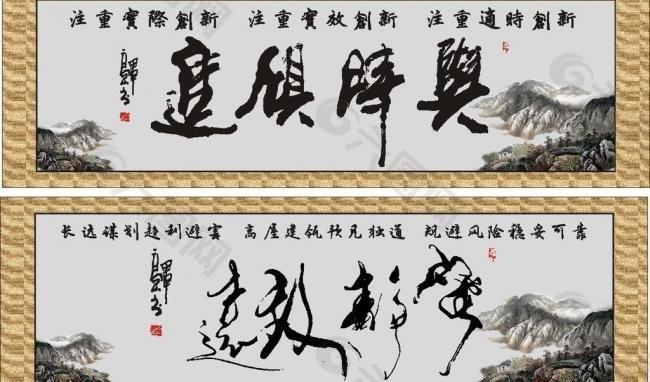 注重實際創新 注重實效創新 注重適時創新
與時俱進
长远谋划趋利避害 高屋建瓴预见独道 规避风险稳妥可靠
寧靜致遠